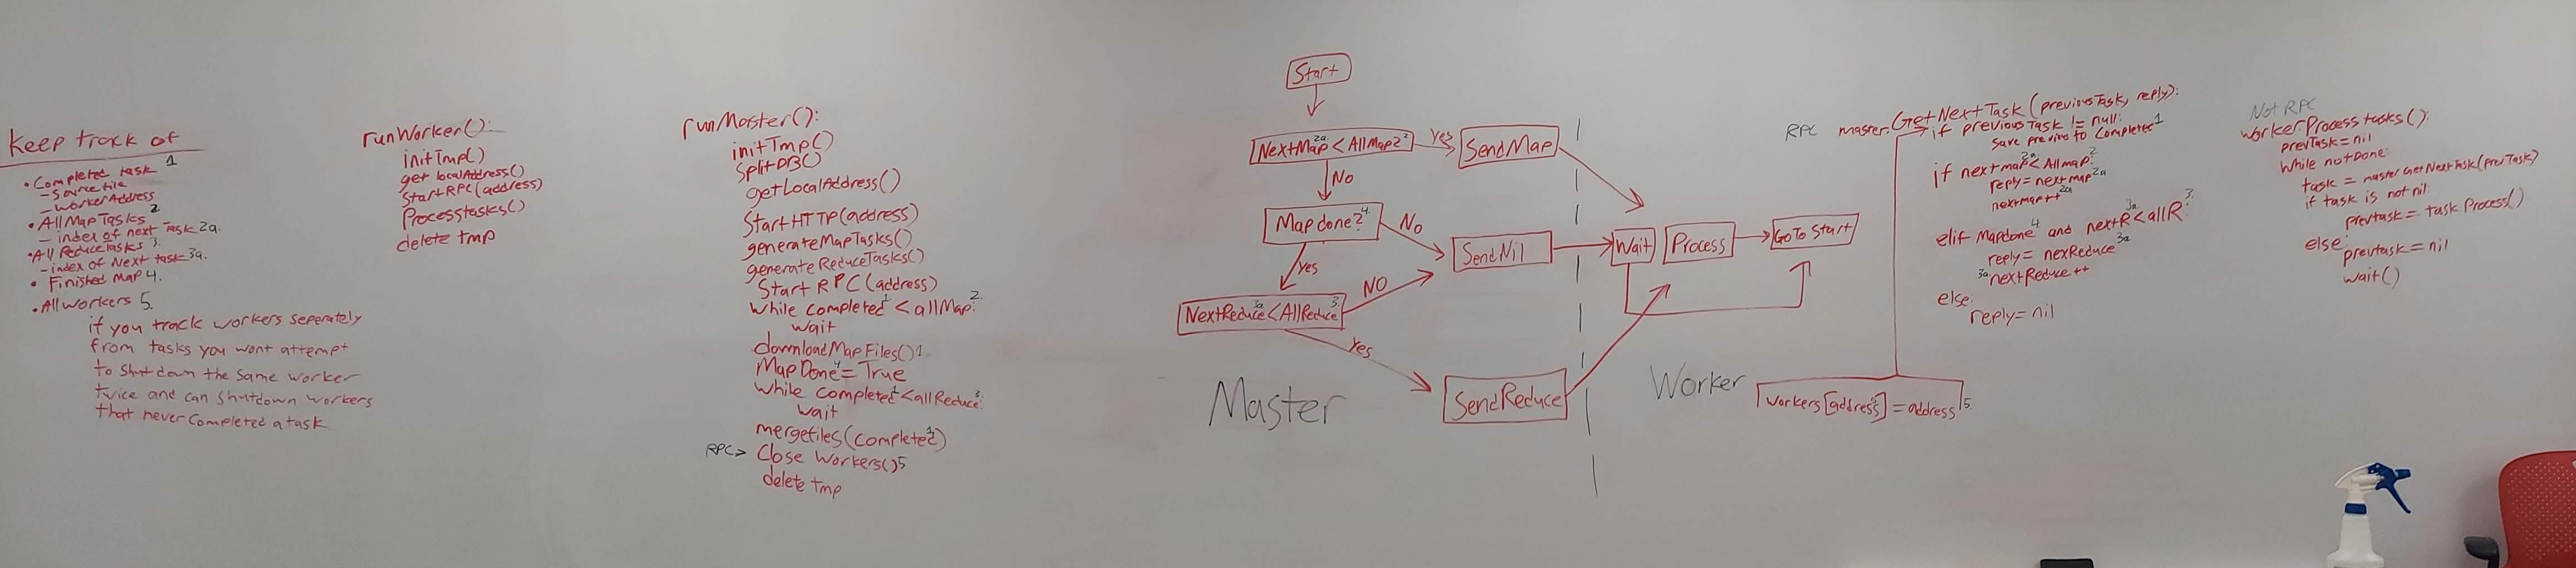 Keep track of
• Completed task 1
- Source file
- Worker Address
• All Map Tasks 2
- index of next Task 2a.
• All Reduce Tasks 3.
- index of Next task 3a.
• Finished Map 4.
• All workers 5.
if you track workers seperately
from tasks you wont attempt
to shutdown the same worker
twice and can shutdown workers
that never completed a task
runWorker():
initTmp()
get localAddress()
StartRPC(address)
Processtasks()
delete tmp
runMaster():
initTmp()
SplitDB()
getLocalAddress()
StartHTTP(address)
generateMapTasks()
generateReduceTasks()
Start RPC(address)
while completed 1 < allMap: 2.
wait
downloadMapFiles() 1
MapDone 4 = True
while completed 1 < allReduce: 3.
wait
mergefiles(completed 1)
RPC> Close Workers() 5
delete tmp
Start
NextMap 2a. < AllMap? 2
Yes
SendMap
No
Map done? 4.
No
SendNil
Wait
Process
GoTo Start
Yes
NO
NextReduce 3a < AllReduce 3.
Yes
SendReduce
Master
Worker
RPC master.GetNextTask(previousTask, reply):
if previousTask != null:
Save previous to Completed 1
if nextmap 2a < Allmap: 2
reply = nextmap 2a
nextmap++ 2a
elif Mapdone 4 and nextR 3a < allR: 3.
reply = nexReduce 3a
3a nextReduce++
else:
reply = nil
workers[address] = address 5.
Not RPC
worker.Processtasks():
prevTask = nil
while notDone:
task = master.GetNextTask(prevTask)
if task is not nil:
prevtask = task.Process()
else:
prevtask = nil
wait()